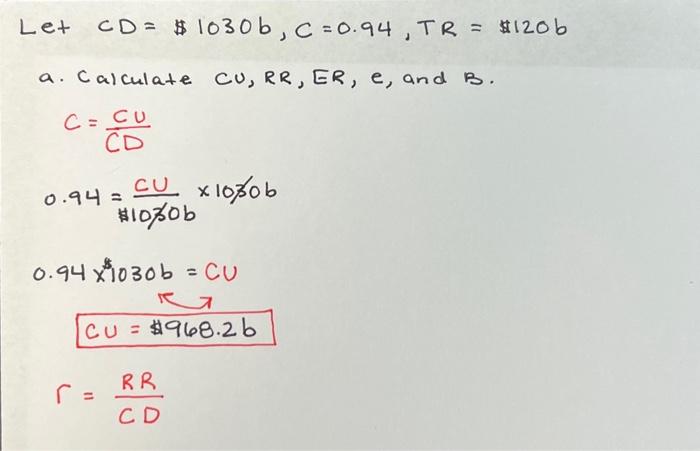 Let CD = $1030b, C = 0.94, TR = $120b
a. Calculate CU, RR, ER, e, and B.
C = CU/CD
0.94 = CU/$1030b x 1030b
0.94 x $1030b = CU
CU = $968.2b
r = RR/CD